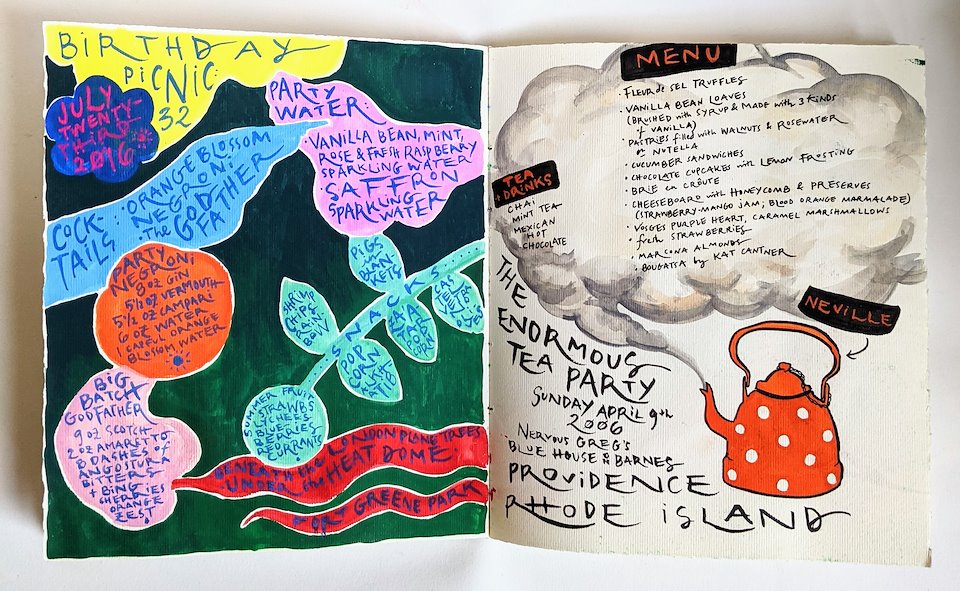 BIRTHDAY
PICNIC:
32
JULY
TWENTY-
THIRD
2016
PARTY
WATER:
·VANILLA BEAN, MINT,
ROSE & FRESH RASPBERRY
SPARKLING WATER
·SAFFRON
SPARKLING
WATER
COCK-
TAILS
:ORANGE BLOSSOM
NEGRONI
·THE GODFATHER
FATHER
PARTY
NEGRONI
8 OZ GIN
5 1/2 OZ VERMOUTH
5 1/2 OZ CAMPARI
6 OZ WATER
1 CAPFUL ORANGE
BLOSSOM WATER
BIG
BATCH
GODFATHER
9 OZ SCOTCH
2 OZ AMARETTO
8 DASHES of
ANGOSTURA
BITTERS
+ BING
CHERRIES
ORANGE
ZEST!
SNACKS
PIGS
in
BLAN-
KETS
SHRIMP
CHIPS
POP
CORN
SUMMER FRUIT
STRAWBS
LYCHEES
BLUE-
BERRIES
RED CURRANTS
BENEATH the LONDON PLANE TREES
·UNDER the HEAT DOME·
FORT GREENE PARK
MENU
·FLEUR de SEL TRUFFLES
·VANILLA BEAN LOAVES
(BRUSHED with SYRUP & MADE with 3 KINDS
of VANILLA)
·PASTRIES filled with WALNUTS & ROSEWATER
or NUTELLA
·CUCUMBER SANDWICHES
·CHOCOLATE CUPCAKES with LEMON FROSTING
·BRIE en CROÛTE
·CHEESEBOARD with HONEYCOMB & PRESERVES
(STRAWBERRY-MANGO JAM; BLOOD ORANGE MARMALADE)
·VOSGES PURPLE HEART, CARAMEL MARSHMALLOWS
·fresh STRAWBERRIES
·MARCONA ALMONDS
·BOUGATSA by KAT CANTNER
TEA
+ DRINKS
CHAI
MINT TEA
MEXICAN
HOT
CHOCOLATE
THE
ENORMOUS
TEA PARTY
SUNDAY APRIL 9th
2006
NERVOUS GREG'S
BLUE HOUSE on BARNES
PROVIDENCE
RHODE ISLAND
NEVILLE